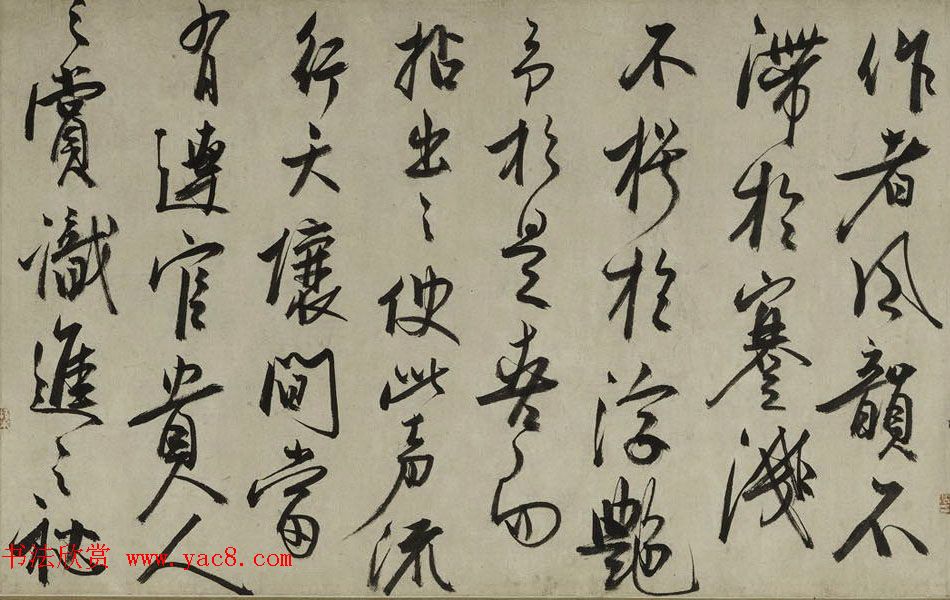 作者風韻不
滯於蹇淺
不於浮艷
予於是喜而
拈出之使此流
行天壤間當
有達官貴人人
之賞識進之
书法欣赏 www.yac8.com